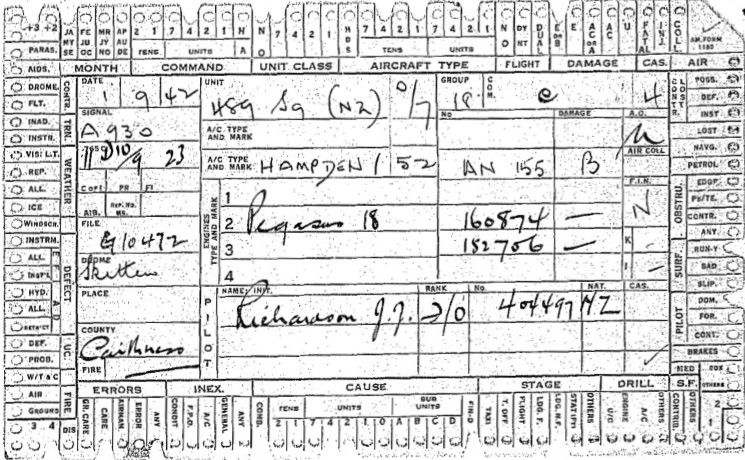 +3 +2 JA MY SE FE JU OC MR JY NO AP AU DE 2 1 7 4 2 1 H NO 7 4 2 1 HDS 7 4 2 1 7 4 2 1 NO DY NT DUAL E OR B E AC OR A U FATAL INJ. COLL AM. FORM 1180
PARAS. TENS UNITS TENS UNITS
AIDS. MONTH COMMAND UNIT CLASS AIRCRAFT TYPE FLIGHT DAMAGE CAS. AIR
DROME CONTR. DATE UNIT GROUP COM. CONTR. LOST POSS.
1 9 42 489 Sq (NZ) 0/7 18 e 4
FLT. SIGNAL No DAMAGE A.O. DEF.
INAD. TRN. A930 A/C TYPE AND MARK INST
INSTR. LOST
VISI LT. WEATHER 765C 11 D10/9 23 A/C TYPE AND MARK HAMPDEN 1 52 AN 155 B AIR COLL NAVG.
REP. PETROL
ALL. COPY PR A F.I.R. OBSTRU. EDGP
ICE AIR. REP. NO. ENGINES TYPE AND MARK 1 N PY/TE.
WINDSCN. FILE 2 Pegasus 18 160874 — CONTR.
INSTRM. G10472 3 182706 — K ANY.
ALL. DEFECT DROME 4 I SURF. RUN-Y
INSP'L Skitten BAD
HYD. PLACE PILOT NAME: INIT. RANK No. NAT. CAS. SLIP.
ALL. Richardson J.J. 404497 NZ PILOT DOM.
RETR'CT COUNTY FOR.
DEF. UC. Caithness CONT.
PROB. FIRE BRAKES
W/T & C MED
AIR FIRE ERRORS INEX. CAUSE STAGE DRILL S.F. OTHERS
GROUND GR. CARE CARE AIRMAN ERROR ANY CONDIT F.P.D. A/C GENERAL ANY COND. TENS UNITS SUB UNITS FIN-D TAXI T. OFF FLIGHT LDG. F. LDG. R.F. STAT'ON'Y OTHERS U/C ENGINE A/C OTHERS CONTRIB. OTHERS 2
3 4 DIS 2 1 7 4 2 1 0 A B C D 1